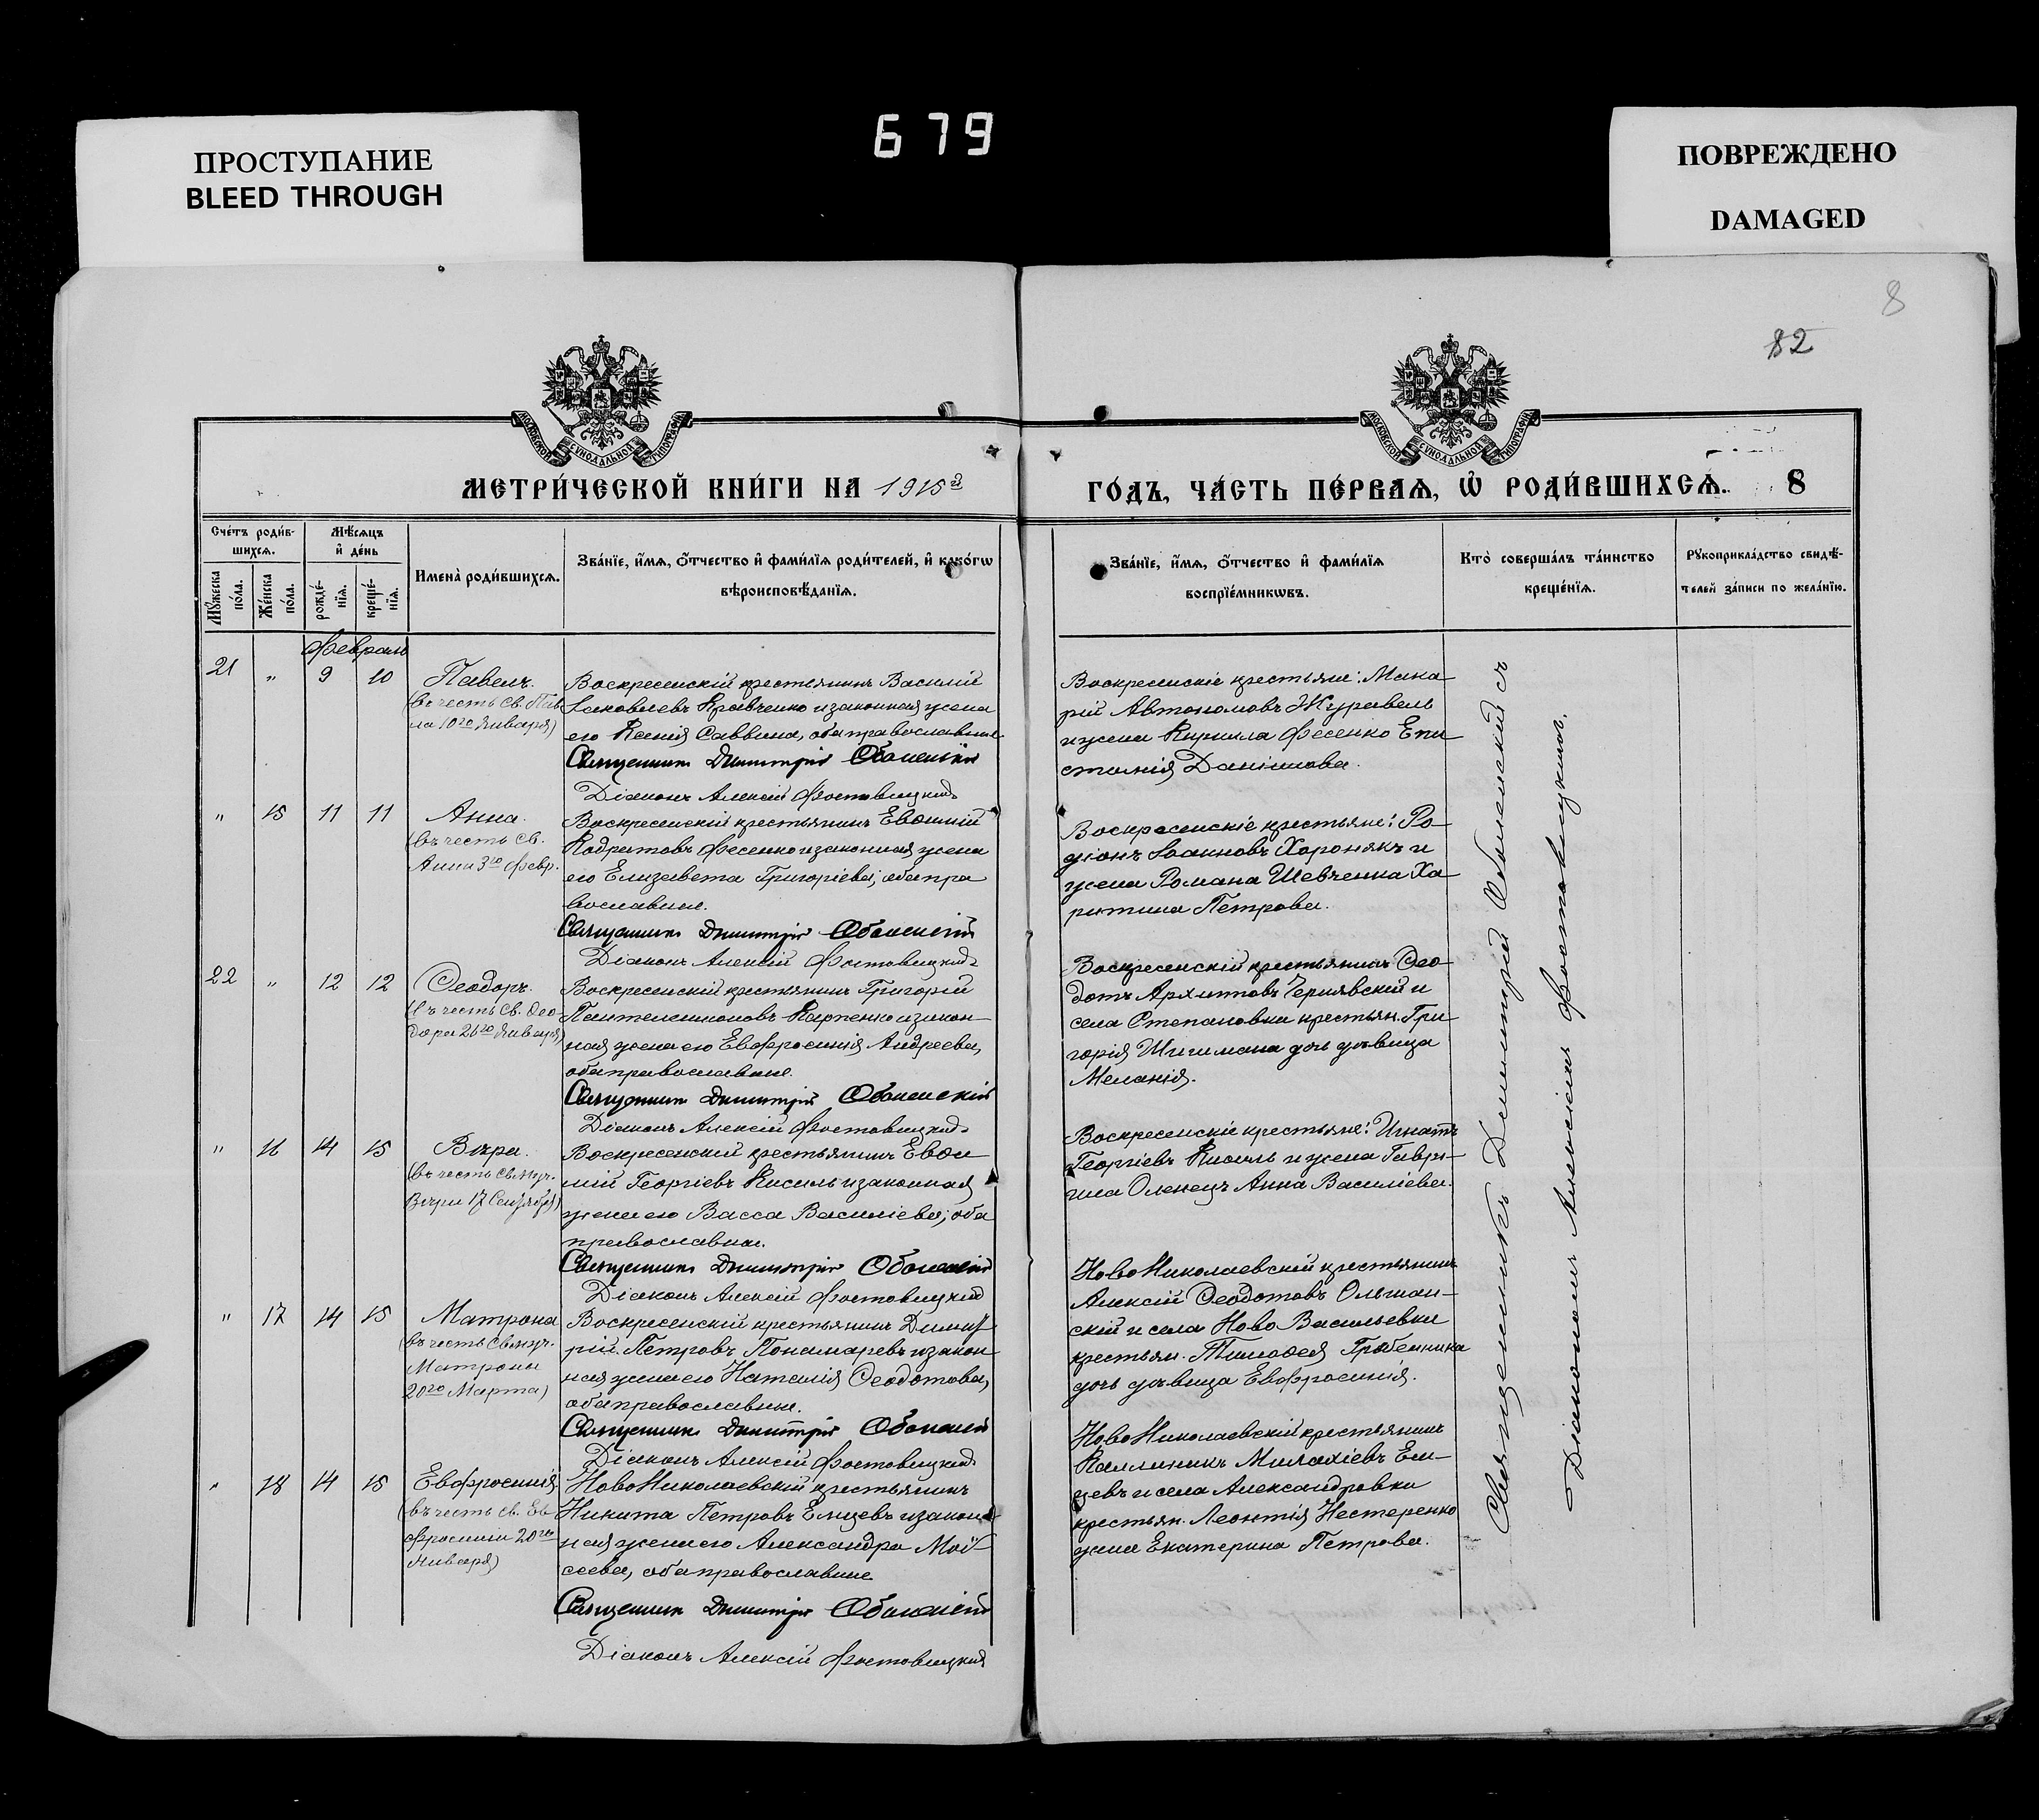 679
ПРОСТУПАНИЕ
BLEED THROUGH
ПОВРЕЖДЕНО
DAMAGED
8
82
МОСКОВСКОЙ СѴНОДАЛЬНОЙ ТИПОГРАФІИ
МОСКОВСКОЙ СѴНОДАЛЬНОЙ ТИПОГРАФІИ
МЕТРИ́ЧЕСКОЙ КНИ́ГИ НА 1915й
ГО́ДЪ, ЧА́СТЬ ПЕ́РВАѦ, Ѽ РОДИ́ВШИХСѦ. 8
Сче́тъ роди́в-
шихсѧ.
Мѣ́сѧцъ
и҆ де́нь
Мꙋ́жеска
по́ла.
Же́нска
по́ла.
рожде́-
нїѧ.
креще́-
нїѧ.
Имена̀ роди́вшихсѧ.
Зва́нїе, и҆́мѧ, ѻ҆́тчество и҆ фами́лїѧ роди́телей, и҆ како́гѡ
вѣроисповѣ́данїѧ.
Зва́нїе, и҆́мѧ, ѻ҆́тчество и҆ фами́лїѧ
воспрїе́мникѡвъ.
Кто̀ соверша́лъ та́инство
креще́нїѧ.
Рꙋкоприкла́дство свидѣ́-
телей за́писи по жела́нїю.
Февраль
21 " 9 10
Павелъ.
(въ честь св. Пав
ла 10го Января)
Воскресенскій крестьянинъ Василій
Іаковлевъ Кравченко и законная жена
его Ксенія Саввина, оба православные
Священникъ Димитрій Оболенскій
Діаконъ Алексій Фостовицкий
Воскресенскіе крестьяне: Мака
рій Автономовъ Журавель
и жена Кирилла Фесенко Епи
стимія Даніилова.
" 15 11 11
Анна.
(въ честь св.
Анны 3го Февр.
Воскресенскій крестьянинъ Евѳимій
Кодратовъ Фесенко и законная жена
его Елизавета Григоріева, оба пра
вославные.
Священникъ Димитрій Оболенскій
Діаконъ Алексій Фостовицкий
Воскресенскіе крестьяне: Ро
діонъ Іоанновъ Хоронякъ и
жена Романа Шевченка Ха
ритина Петрова.
22 " 12 12
Ѳеодоръ.
(въ честь св. Ѳео
дора 26го Января)
Воскресенскій крестьянинъ Григорій
Пантелеимоновъ Карпенко и закон
ная жена его Евфросинія Андреева,
оба православные.
Священникъ Димитрій Оболенскій
Діаконъ Алексій Фостовицкий
Воскресенскій крестьянинъ Ѳео
дотъ Архиповъ Чернявскій и
села Степановки крестьян. Гри
горія Шигимана дочь дѣвица
Меланія.
" 16 14 15
Вѣра.
(въ честь св. муч.
Вѣры 17 Сентября)
Воскресенскій крестьянинъ Евѳи
мій Георгіевъ Кисиль и законная
жена его Васса Василіева, оба
православные.
Священникъ Димитрій Оболенскій
Діаконъ Алексій Фостовицкий
Воскресенскіе крестьяне: Игнатъ
Георгіевъ Кисиль и жена Гаври
ила Оленецъ Анна Василіева.
" 17 14 15
Матрона
(въ честь св. муч.
Матроны
20го Марта)
Воскресенскій крестьянинъ Димит
рій Петровъ Понамаревъ и закон
ная жена его Наталія Ѳеодотова,
оба православные.
Священникъ Димитрій Оболенскій
Діаконъ Алексій Фостовицкий
Ново Николаевскій крестьянинъ
Алексій Ѳеодотовъ Ольшан-
скій и села Ново Васильевки
крестьян. Тимоѳея Гребенника
дочь дѣвица Евфросинія.
" 18 14 15
Евфросинія
(въ честь св. Ев
фросиніи 20го
Января)
Ново Николаевскій крестьянинъ
Никита Петровъ Елцевъ и закон
ная жена его Александра Мои
сеева, оба православные
Священникъ Димитрій Оболенскій
Діаконъ Алексій Фостовицкий
Ново Николаевскій крестьянинъ
Каллиникъ Малахіевъ Ел-
цевъ и села Александровки
крестьян. Леонтія Нестеренко
жена Екатерина Петрова.
Священникъ Димитрій Оболенскій съ
Діакономъ Алексіемъ Фостовицкимъ.